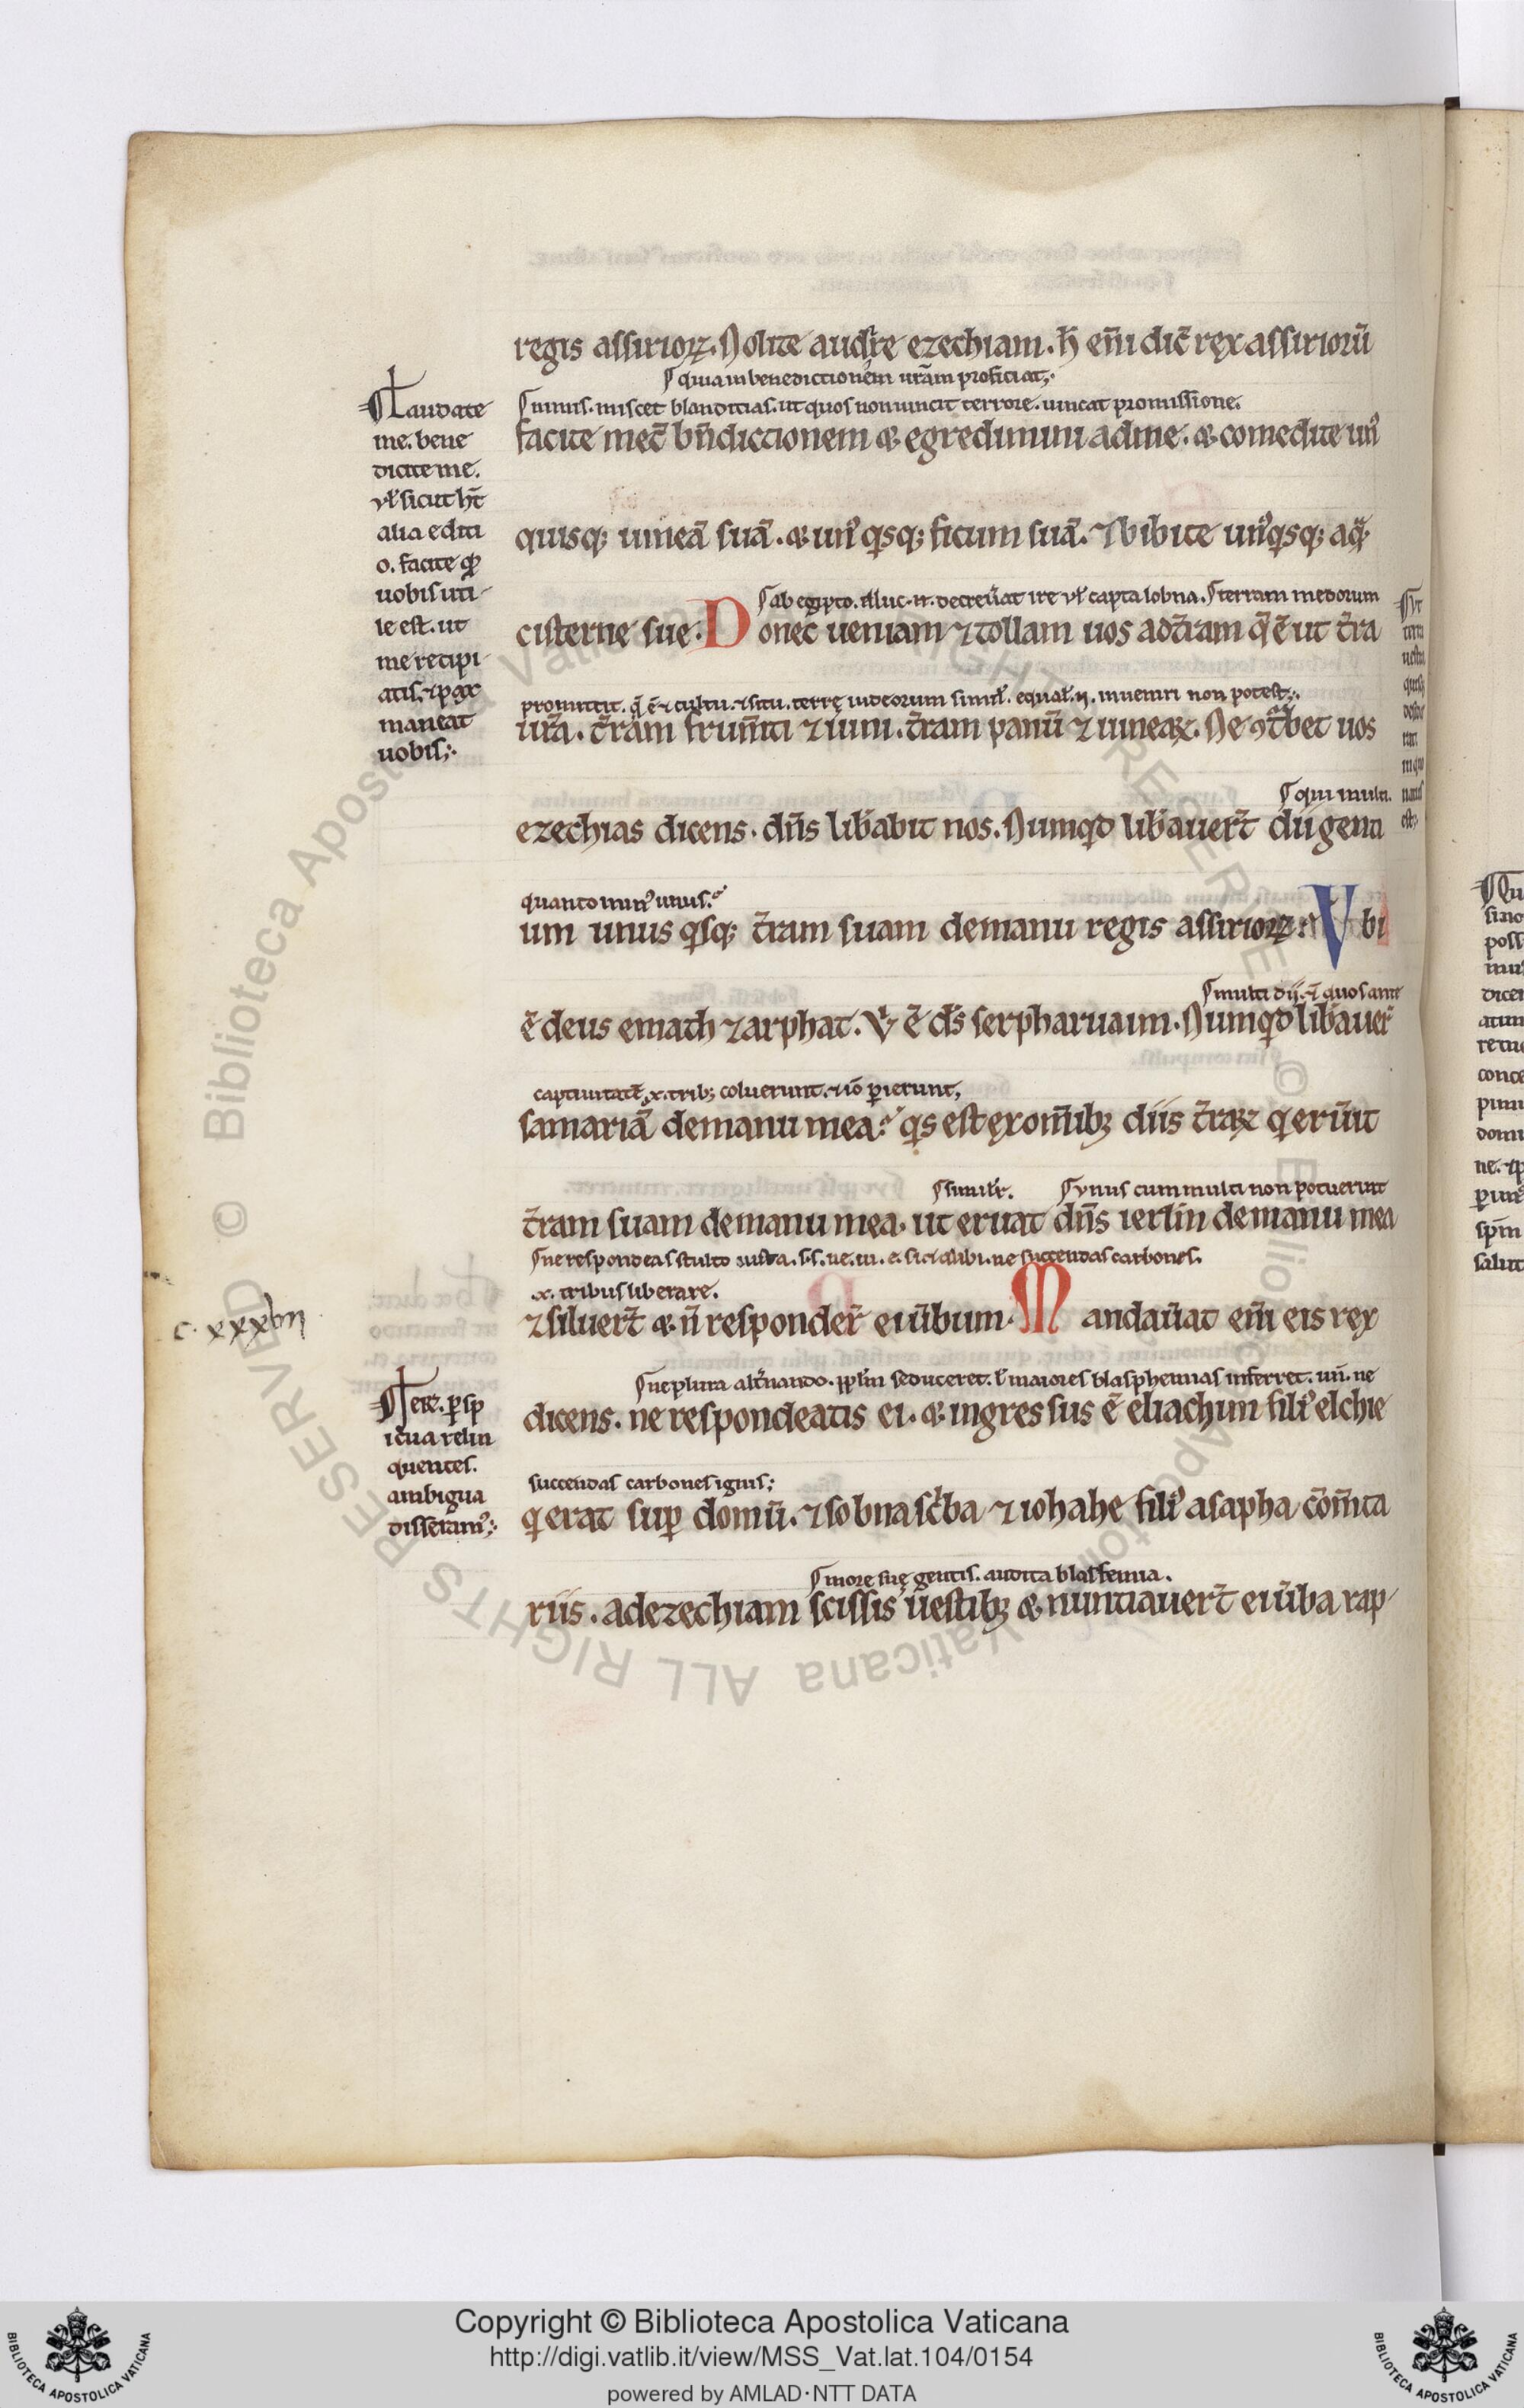 regis assirioꝝ. Nolite audire ezechiam. h̄ em̄ dic̄ rex assirioꝝū
quia in benedictionem ur̄am proficiat;
minis. miscet blanditias. ut quos non uincit terrore. uincat promissione.
facite mec̄ bn̄dictionem & egredimini ad me. & comedite un'
quisq; uineā suā. & un' qsq; ficum suā. ⁊ bibite un'qsq; aq̄
ab egipto. illuc. n. decreu̅at ire ul' capta lobna. terram medorum
cisterne sue. Donec ueniam ⁊ tollam uos ad t̄ram q̄ ē ut t̄ra
promittit. q̄ ē & cultu. & situ. terrę iudeorum simil'. equal'. n. inueniri non potest;
ur̄a. t̄ram frum̄ti ⁊ uini. t̄ram panū ⁊ uineaꝝ. Ne ꝯt̄bet uos
qui multi.
ezechias dicens. dn̄s lib̄abit nos. Numqd lib̄auer̄t dii genti
quanto min' unus.
um unus qsq; t̄ram suam de manu regis assirioꝝ? Vbi
multi dij. ⁊ quos ante
ē deus emath ⁊ arphat. V' ē ds̄ serpharuaim. Numqd lib̄auer̄
captiuitatē. x. trib; coluerunt. & iō ꝑierunt,
samariā de manu mea? qs est ex om̄ib; diis t̄raꝝ q eru̅it
simil'r. unus cum multi non potuerint
t̄ram suam de manu mea. ut eruat dn̄s ierlm̄ de manu mea
ne respondeas stulto iuxta. s. s. ne. ui. e. sic ⁊ alibi. ne succendas carbones.
x. tribus liberare.
⁊ siluer̄t & n̄ responder̄ ei u̅bum. Mandau̅at em̄ eis rex
ne plura alt̄nando. ppl'm seduceret. l' maiores blasphemias inferret. un̄. ne
dicens. ne respondeatis ei. & ingressus ē eliachim fili' elchie
succendas carbones ignis;
q erat suꝑ domū. ⁊ sobna sc'ba ⁊ iohahe fili' asapha com̄ta
more suę gentis. audita blasfemia.
riis. ad ezechiam scissis uestib; & nuntiauer̄t ei u̅ba rap
Laudate
me. bene
dicite me.
ul' sicut h̄t
alia editi
o. facite qd
uobis uti
le est. ut
me recipi
atis, & pax
maneat
uobis;
c. xxxvii
Ier. ꝑsp
icua relin
quentes.
ambigua
disseram';
Ut
terra
uestra
in qua
nati
est
Copyright © Biblioteca Apostolica Vaticana
http://digi.vatlib.it/view/MSS_Vat.lat.104/0154
powered by AMLAD·NTT DATA
BIBLIOTECA APOSTOLICA VATICANA
BIBLIOTECA APOSTOLICA VATICANA
© Biblioteca Apostolica Vaticana ALL RIGHTS RESERVED